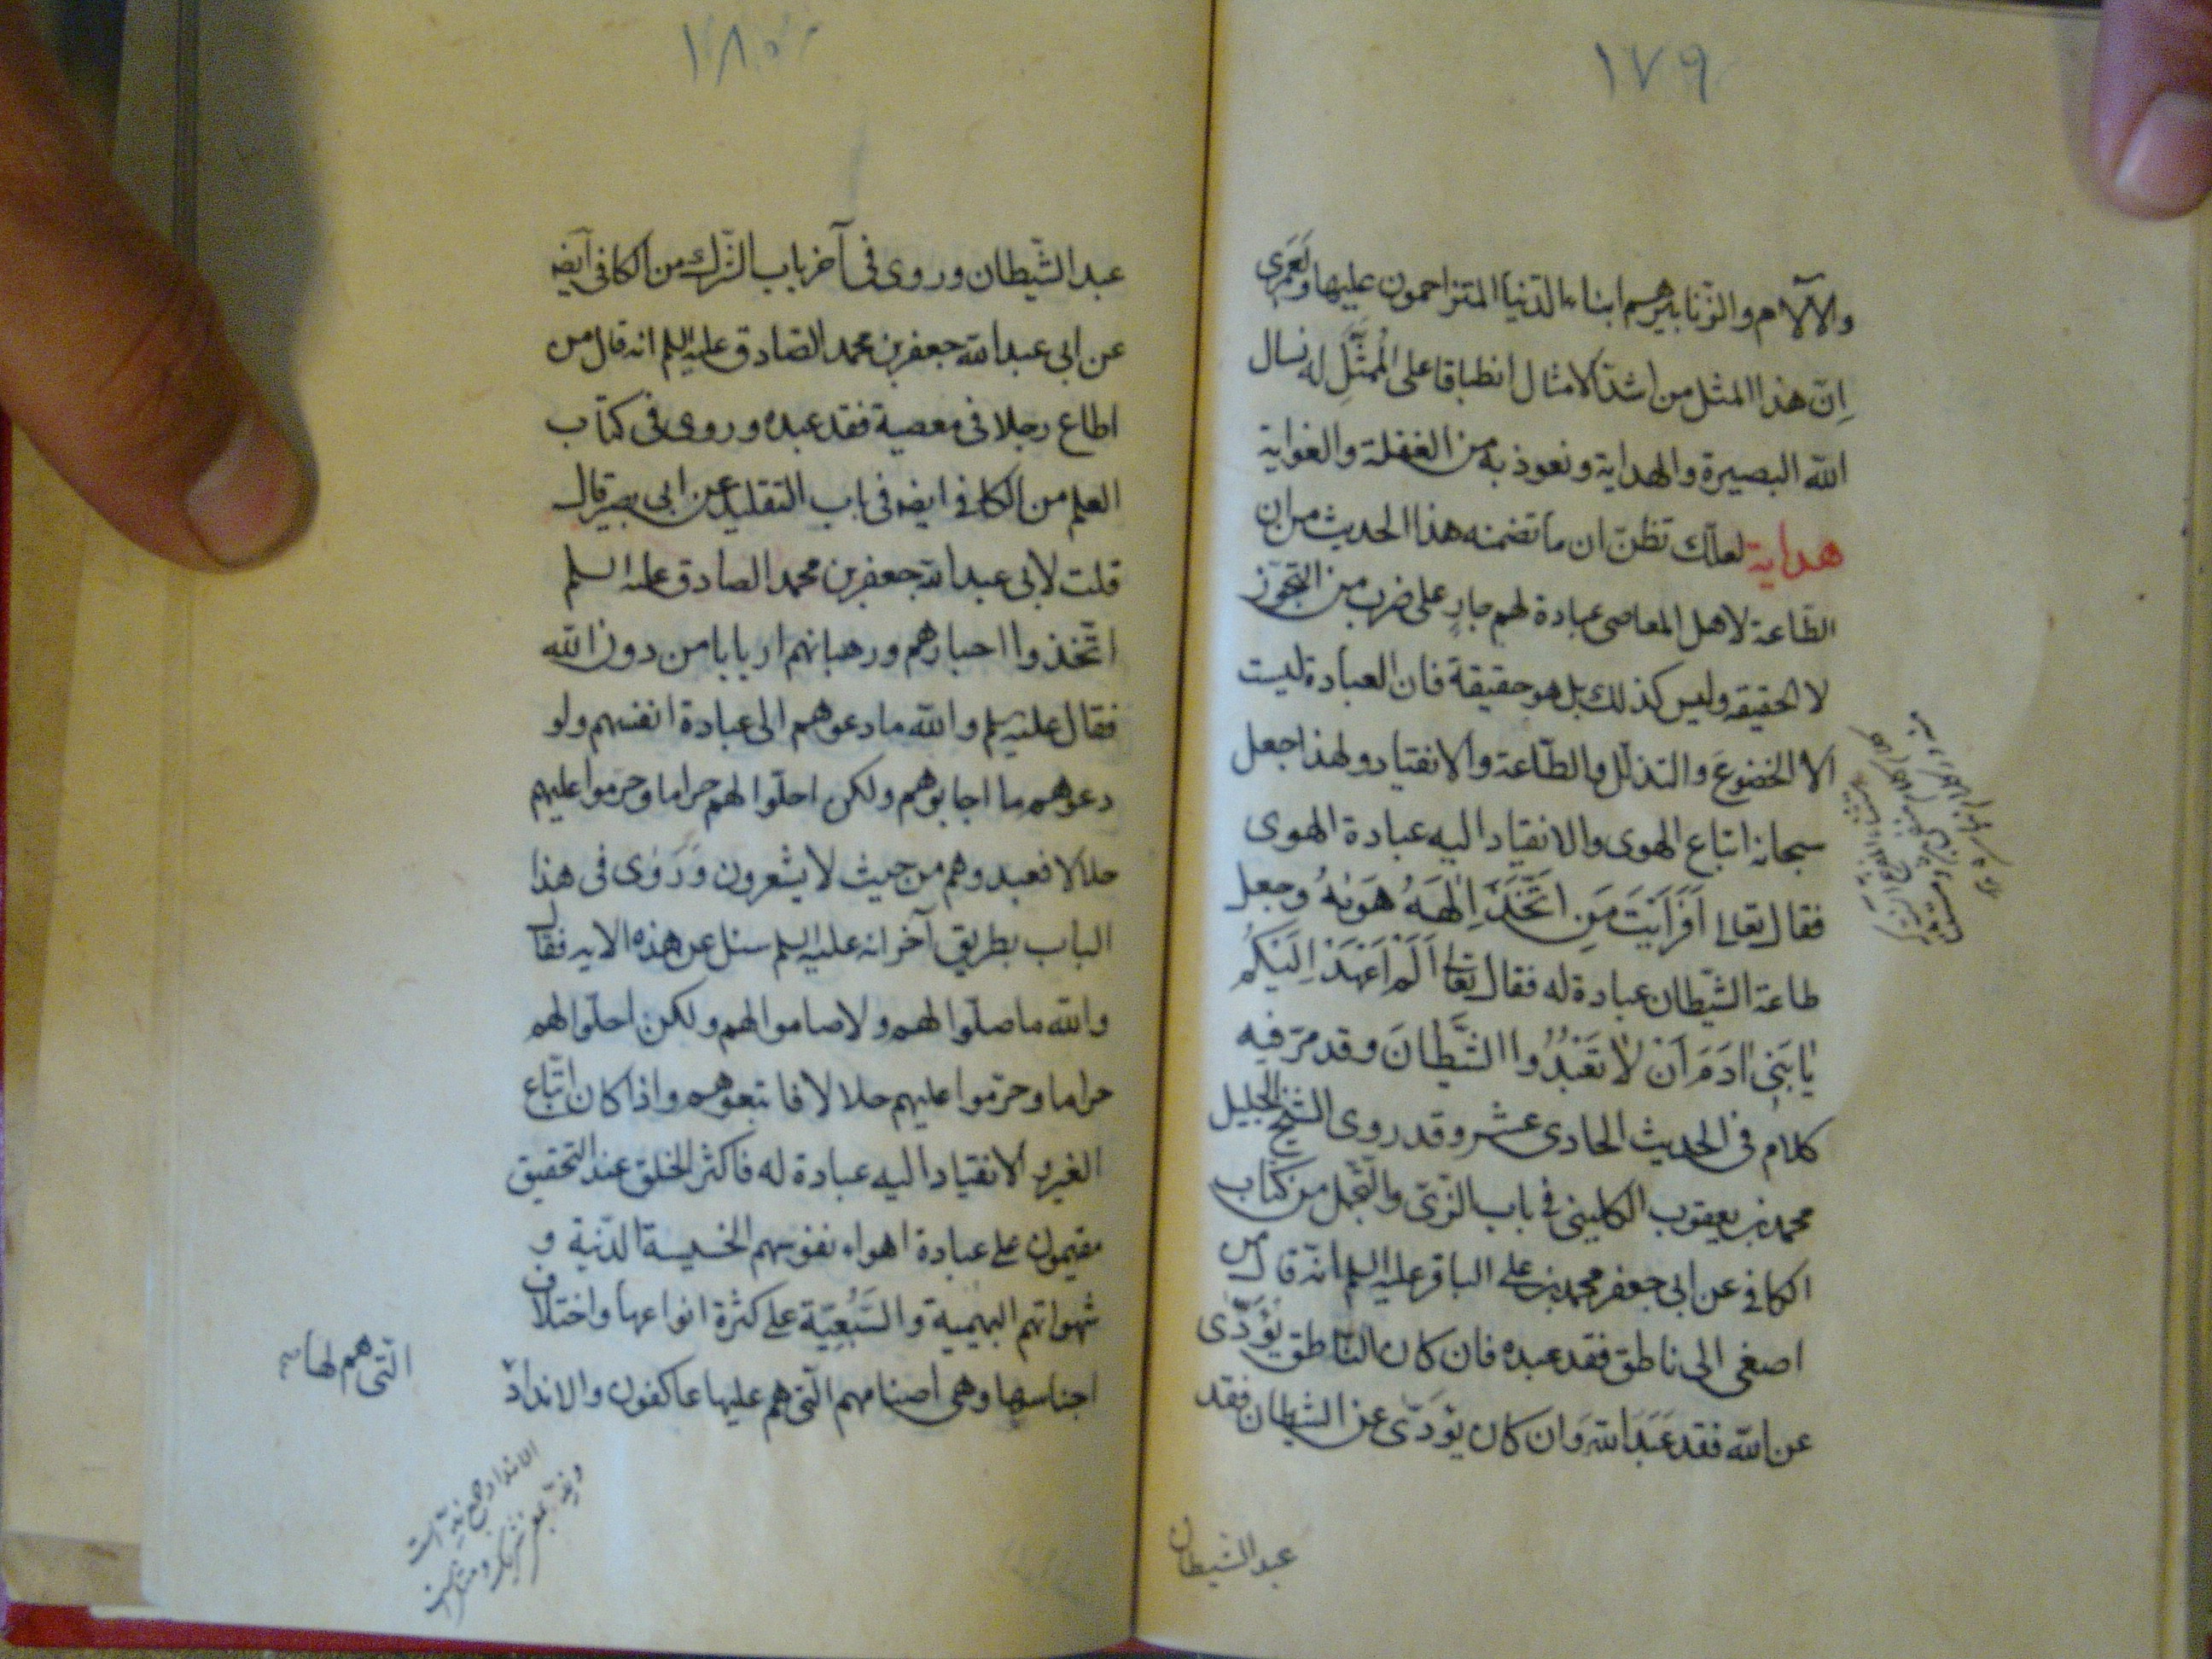 ١٧٩
والآلام والزنابير هم ابناء الدنيا المتزاحمون عليها ولَعَمري
اِنّ هذا المثل من اشدّ الامثال انطباقا على الُممَثَّلِ له نسال
الله البصيرة والهداية ونعوذ به من الغفلة والغواية
هداية لعلك تظنّ ان ما تضمنه هذا الحديث من ان
الطّاعة لاهل المعاصى عبادة لهم جارٍ على ضرب من التجوّز
لا الحقيقه وليس كذلك بل هو حقيقة فان العبادة ليست
الا الخضوعَ والتذلّل والطّاعة والانقياد ولهذا جعل
سبحانه اتباع الهوى والانقياد اليه عبادة الهوى
فقال تعالى اَفَرَاَيْتَ مَنِ اتَّخَذَ اِلٰهَهُ هَوٰيهُ وجعل
طاعة الشيّطان عبادة له فقال تعالى اَلَمْ اَعْهَدْ اِلَيْكُم
يٰا بَنِى اٰدَمَ اَنْ لاٰ تَعْبُدُوا الشَّيْطٰانَ وقد مرّ فيه
كلام فى الحديث الحادى عشر وقد روى الشيخ الجليل
محمد بن يعقوب الكلينى فى باب الزّىّ والتّجمّل من كتاب
الكافى عن ابى جعفر محمد بن على الباقر عليه السلم انّه قال من
اصغى الى ناطق فقد عبده فان كان الناطق يُؤدّى
عن الله فقد عَبَدَ الله وَان كان يؤدّى عن الشيطان فقد
عبد الشيطان
١٨٠
عبد الشّيطان وروى فى آخر باب الشّرك من الكافى ايضه
عن ابى عبد الله جعفر بن محمد الصّادق عليه السلم انه قال من
اطاع رجلا فى معصية فقد عبده وروى فى كتاب
العلم من الكافى ايضه فى باب التقليد عن ابى بصير قال
قلت لابى عبد الله جعفر بن محمد الصادق عليه السلم
اتّخذوا احبارهم ورهبانهم اربابا من دون الله
فقال عليه سلم والله ما دعوهم الى عبادة انفسهم ولو
دعوهم ما اجابوهم ولكن احلّوا لهم حراما وحرّموا عليهم
حلالا فعبدوهم من حيث لا يشعرون وَرَوٰى فى هذا
الباب بطريق آخر انه عليه السلم سئل عن هذه الايه فقال
والله ما صلّوا لهم ولا صاموا لهم ولكن احلّوا لهم
حراما وحرّموا عليهم حلالا فاتبعوهم واذا كان اتّباع
الغير والانقياد اليه عبادة له فاكثر الخلق عند التحقيق
مقيمون على عبادة اهواء نفوسهم الخسيسة الدّنية و
شهواتهم البهيمية والسَّبُعِيّة على كثرة انواعها واختلاف
اجناسها وهى اصنامهم الّتى هم عليها عاكفون والانداد
الّتى هم لها
الانداد جمع